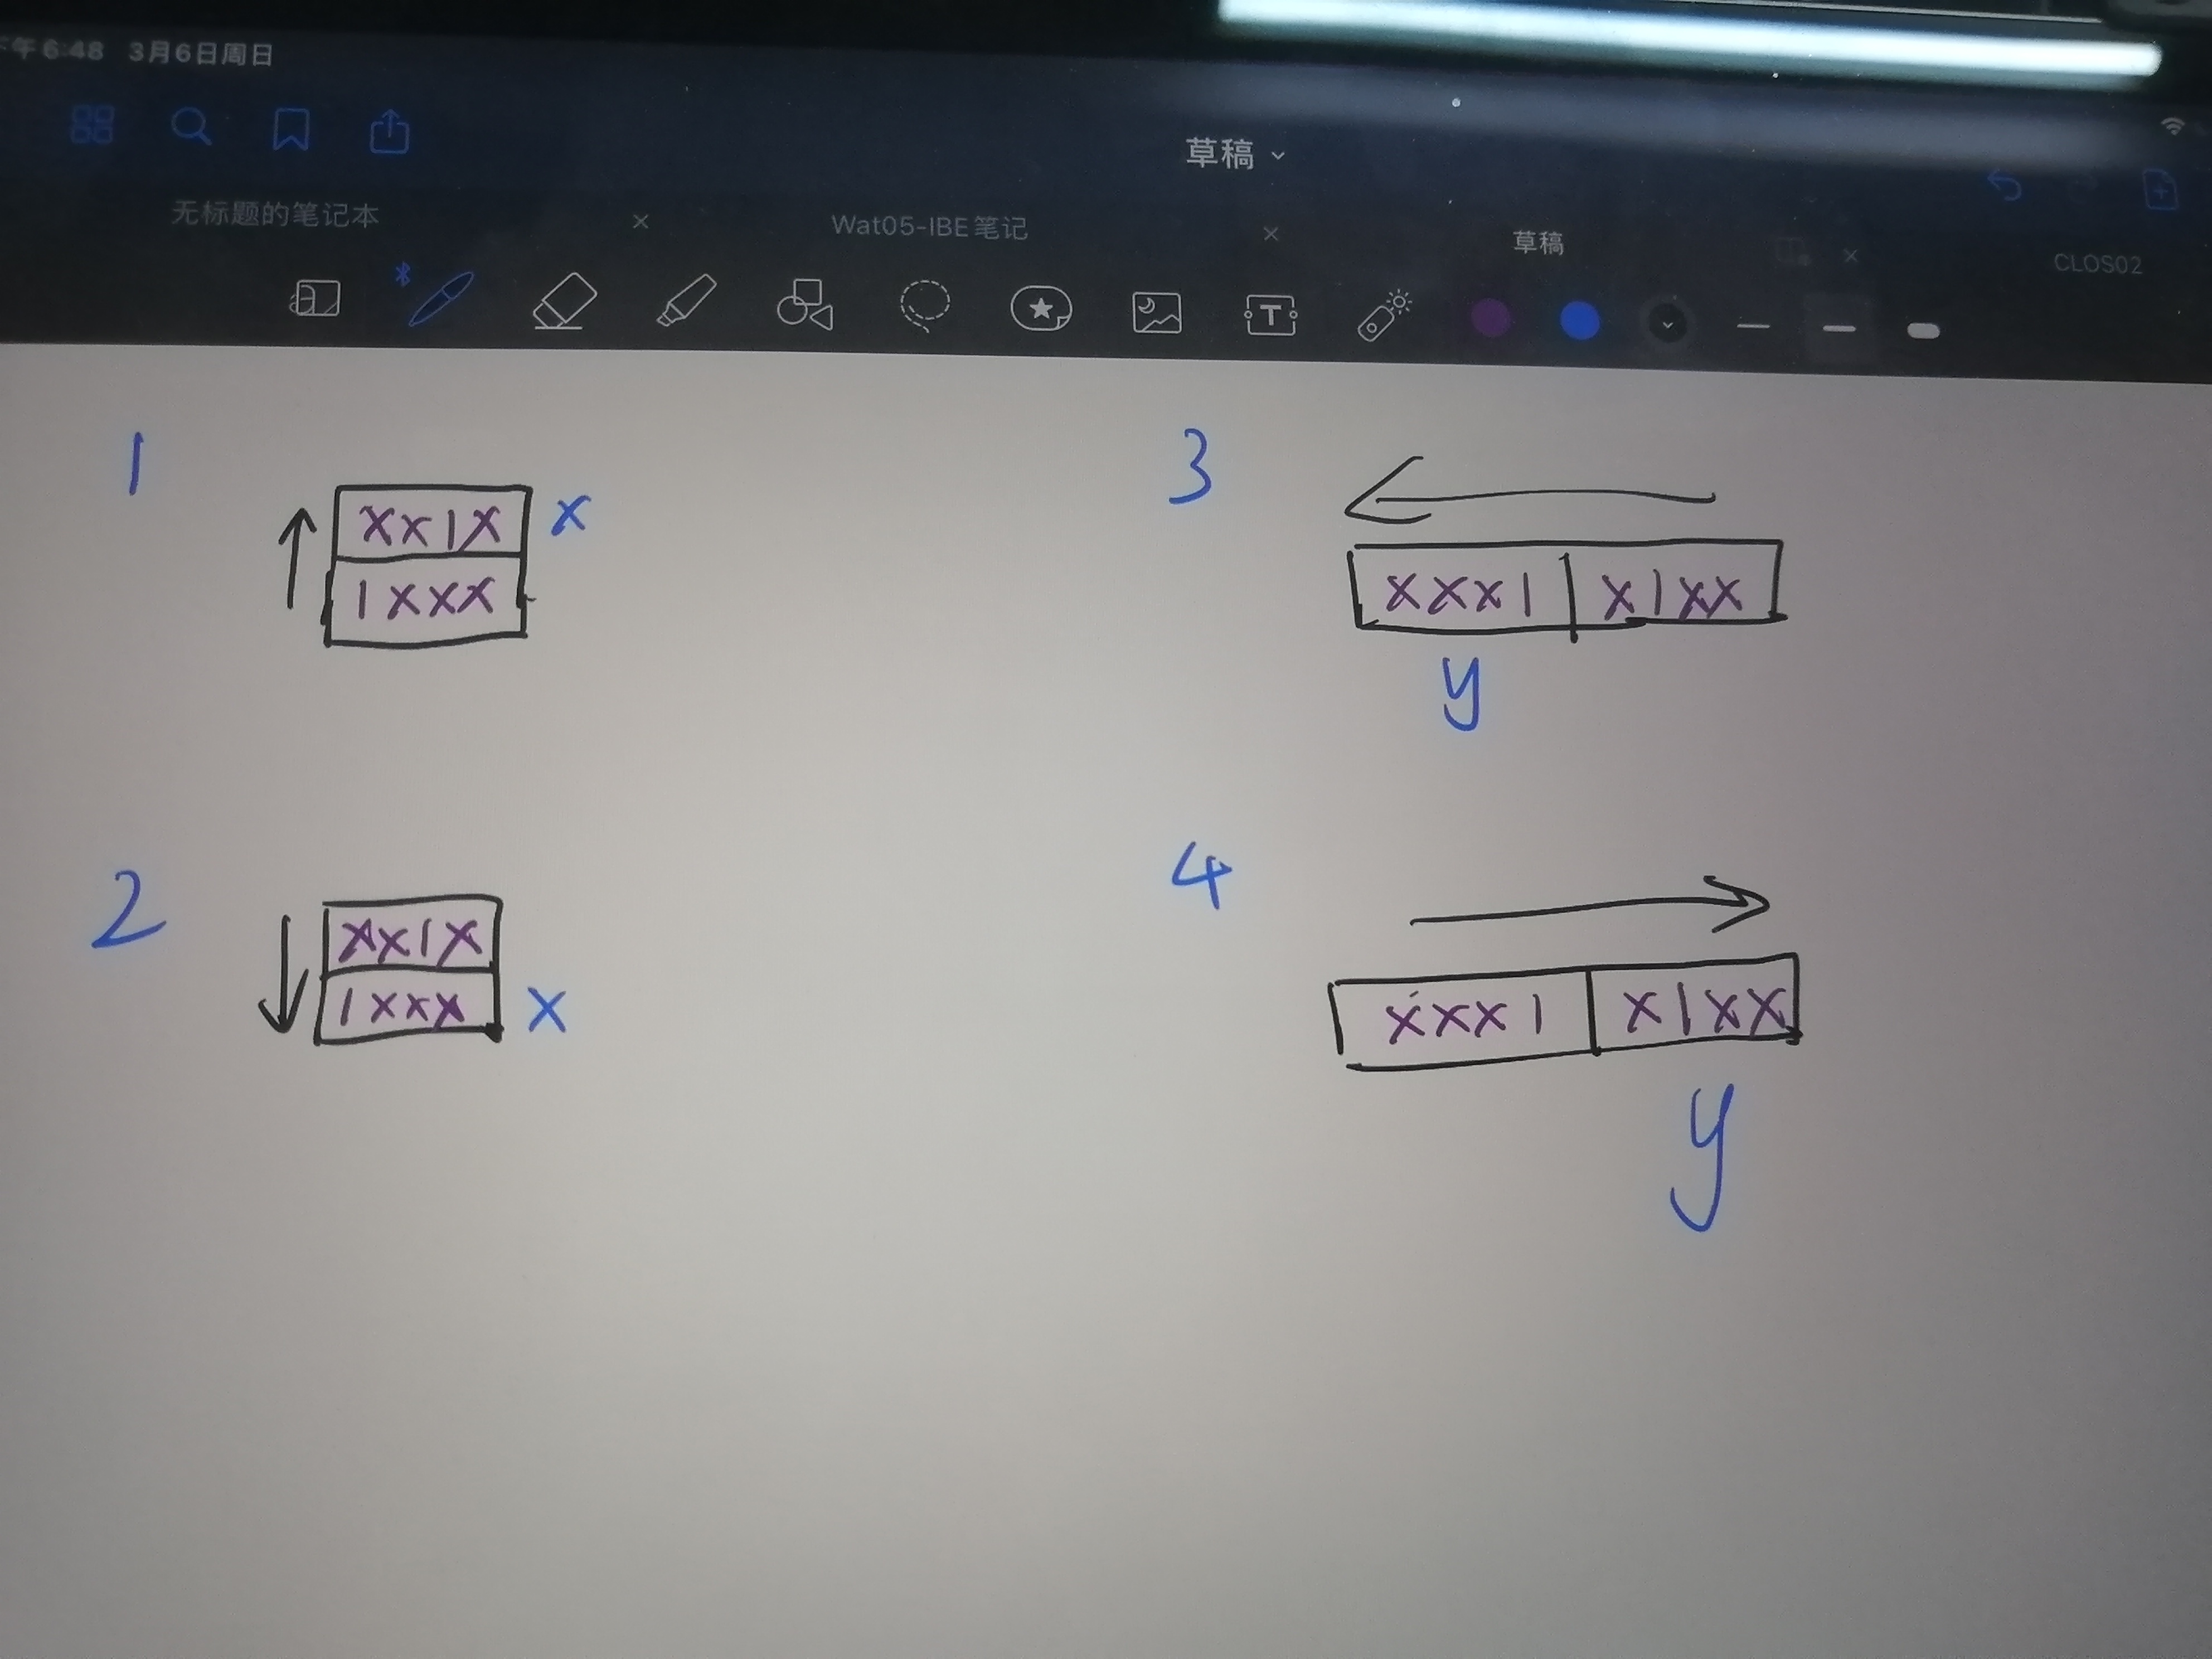 午6:48 3月6日周日
草稿
无标题的笔记本
Wat05-IBE笔记
草稿
CLOS02
1
XX1X x
1XXX
2
XX1X
1XXX x
3
XXX1 X1XX
y
4
XXX1 X1XX
y